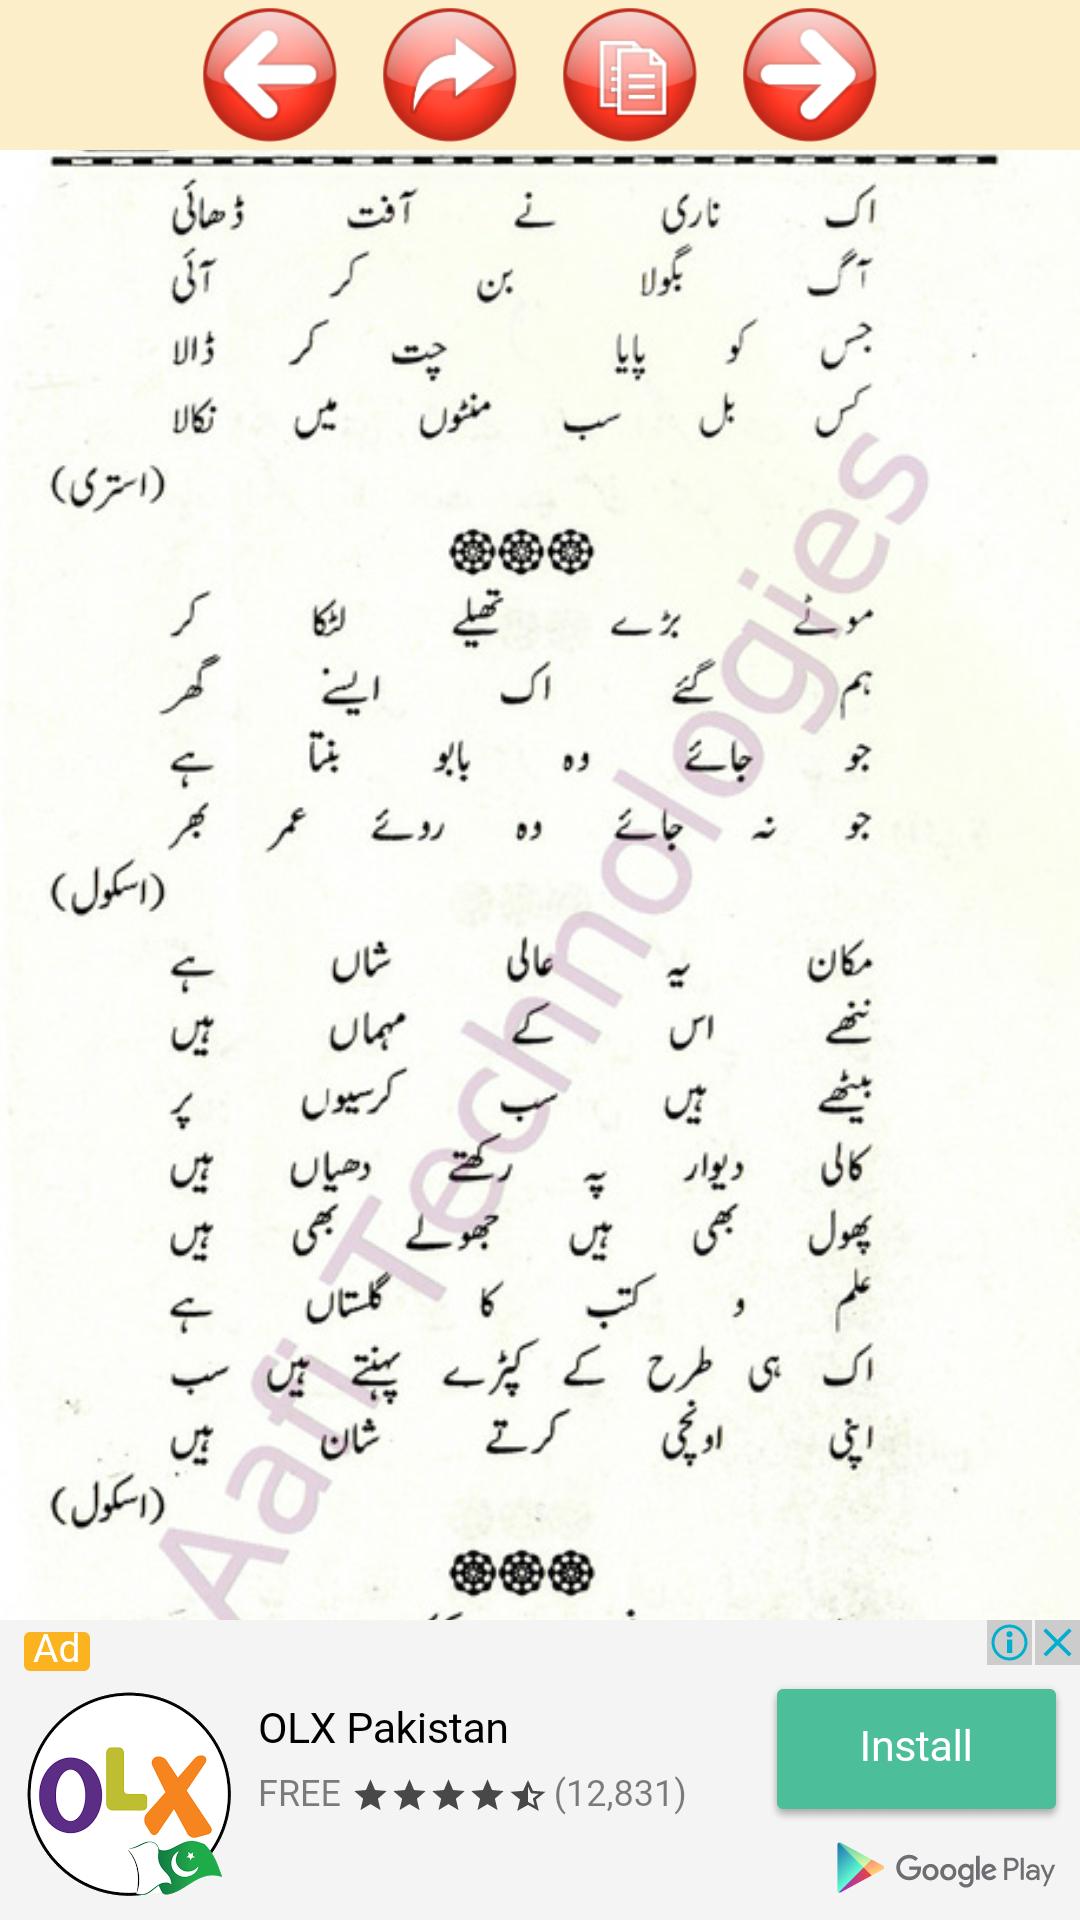 اک ناری نے آفت ڈھائی
آگ بگولا بن کر آئی
جس کو پایا چت کر ڈالا
کس بل سب منٹوں میں نکالا
(استری)
موٹے بڑے تھیلے لٹکا کر
ہم گئے اک ایسے گھر
جو جائے وہ بابو بنتا ہے
جو نہ جائے وہ روئے عمر بھر
(اسکول)
مکان یہ عالی شاں ہے
ننھے اس کے مہماں ہیں
بیٹھے ہیں سب کرسیوں پر
کالی دیوار پہ رکھتے دھیاں ہیں
پھول بھی ہیں جھولے بھی ہیں
علم و کتب کا گلستاں ہے
اک ہی طرح کے کپڑے پہنتے ہیں سب
اپنی اونچی کرتے شان ہیں
(اسکول)
Aafi Technologies
Ad
OLX
OLX Pakistan
FREE (12,831)
Install
Google Play